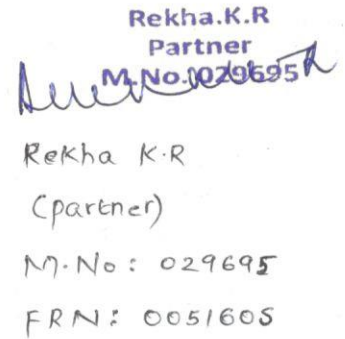 Rekha.K.R
Partner
M.No.029695
Rekha K.R
(partner)
M.No: 029695
FRN: 005160S